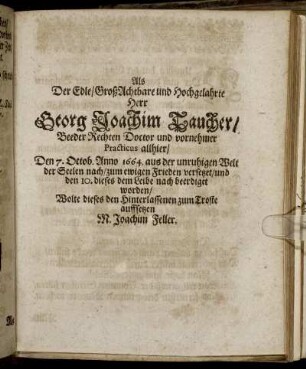 Als
Der Edle/ GroßAchtbare und Hochgelahrte
Herr
Georg Joachim Taucher/
Beeder Rechten Doctor und vornehmer
Practicus allhier/
Den 7. Octob. Anno 1664. aus der unruhigen Welt
der Seelen nach/ zum ewigen Frieden versetzet/ und
den 10. dieses dem Leibe nach beerdiget
worden/
Wolte dieses den Hinterlassenen zum Troste
auffsetzen
M. Joachim Feller.